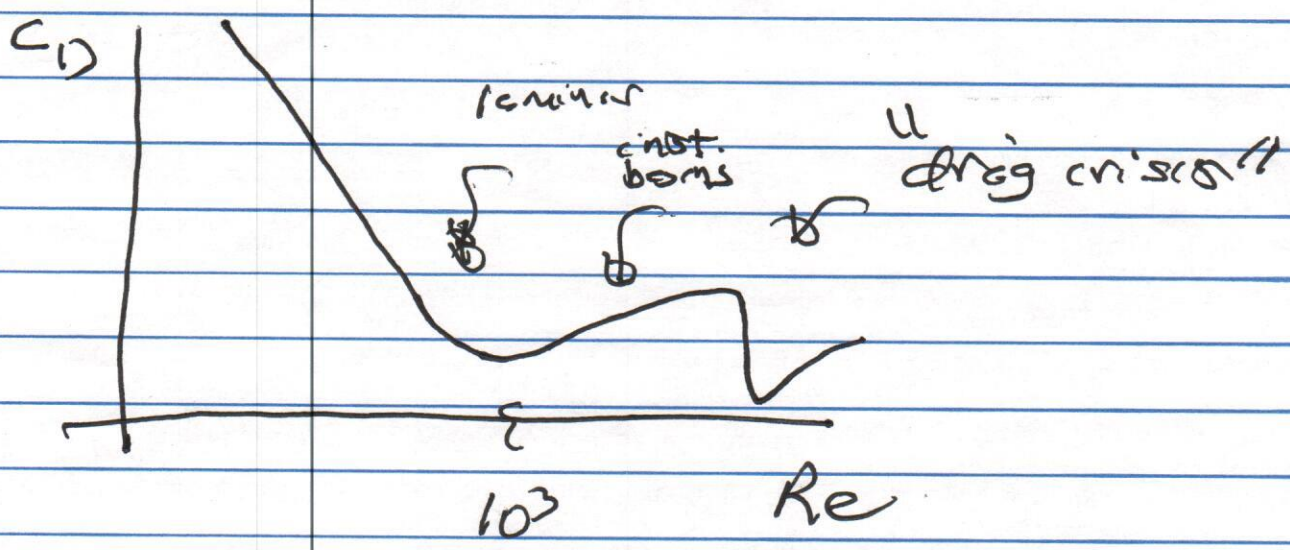 C_D
laminar
inst.
begins
"drag crisis"
10³
Re